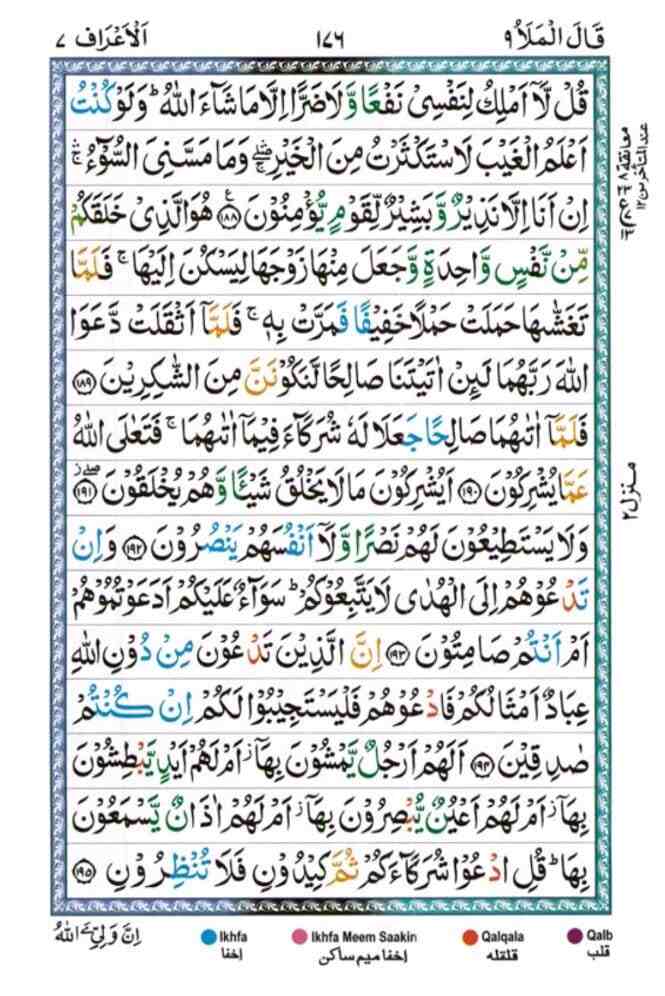 قَالَ الْمَلَاُ ٩
١٧٦
اَلْاَعْرَاف ٧
قُلْ لَّاۤ اَمْلِكُ لِنَفْسِیْ نَفْعًا وَّلَا ضَرًّا اِلَّا مَا شَآءَ اللّٰهُ ؕ وَلَوْ كُنْتُ
اَعْلَمُ الْغَیْبَ لَاسْتَكْثَرْتُ مِنَ الْخَیْرِ ۛۖۚ وَمَا مَسَّنِیَ السُّوْٓءُ ۛۚ
اِنْ اَنَا اِلَّا نَذِیْرٌ وَّبَشِیْرٌ لِّقَوْمٍ یُّؤْمِنُوْنَ ﴿١٨٨﴾ هُوَ الَّذِیْ خَلَقَكُمْ
مِّنْ نَّفْسٍ وَّاحِدَةٍ وَّجَعَلَ مِنْهَا زَوْجَهَا لِیَسْكُنَ اِلَیْهَا ۚ فَلَمَّا
تَغَشّٰىهَا حَمَلَتْ حَمْلًا خَفِیْفًا فَمَرَّتْ بِهٖ ۚ فَلَمَّاۤ اَثْقَلَتْ دَّعَوَا
اللّٰهَ رَبَّهُمَا لَىِٕنْ اٰتَیْتَنَا صَالِحًا لَّنَكُوْنَنَّ مِنَ الشّٰكِرِیْنَ ﴿١٨٩﴾
فَلَمَّاۤ اٰتٰىهُمَا صَالِحًا جَعَلَا لَهٗ شُرَكَآءَ فِیْمَاۤ اٰتٰىهُمَا ۚ فَتَعٰلَی اللّٰهُ
عَمَّا یُشْرِكُوْنَ ﴿١٩٠﴾ اَیُشْرِكُوْنَ مَا لَا یَخْلُقُ شَیْـًٔا وَّهُمْ یُخْلَقُوْنَ ﴿١٩١﴾
وَلَا یَسْتَطِیْعُوْنَ لَهُمْ نَصْرًا وَّلَاۤ اَنْفُسَهُمْ یَنْصُرُوْنَ ﴿١٩٢﴾ وَاِنْ
تَدْعُوْهُمْ اِلَی الْهُدٰی لَا یَتَّبِعُوْكُمْ ؕ سَوَآءٌ عَلَیْكُمْ اَدَعَوْتُمُوْهُمْ
اَمْ اَنْتُمْ صَامِتُوْنَ ﴿١٩٣﴾ اِنَّ الَّذِیْنَ تَدْعُوْنَ مِنْ دُوْنِ اللّٰهِ
عِبَادٌ اَمْثَالُكُمْ فَادْعُوْهُمْ فَلْیَسْتَجِیْبُوْا لَكُمْ اِنْ كُنْتُمْ
صٰدِقِیْنَ ﴿١٩٤﴾ اَلَهُمْ اَرْجُلٌ یَّمْشُوْنَ بِهَاۤ ؗ اَمْ لَهُمْ اَیْدٍ یَّبْطِشُوْنَ
بِهَاۤ ؗ اَمْ لَهُمْ اَعْیُنٌ یُّبْصِرُوْنَ بِهَاۤ ؗ اَمْ لَهُمْ اٰذَانٌ یَّسْمَعُوْنَ
بِهَا ؕ قُلِ ادْعُوْا شُرَكَآءَكُمْ ثُمَّ كِیْدُوْنِ فَلَا تُنْظِرُوْنِ ﴿١٩٥﴾
معانقة ٨
عند المتأخرين ١٢
منزل ٢
اِنَّ وَلِیَِّۧ اللّٰهُ
Ikhfa
اخفا
Ikhfa Meem Saakin
اخفا میم ساکن
Qalqala
قلقله
Qalb
قلب